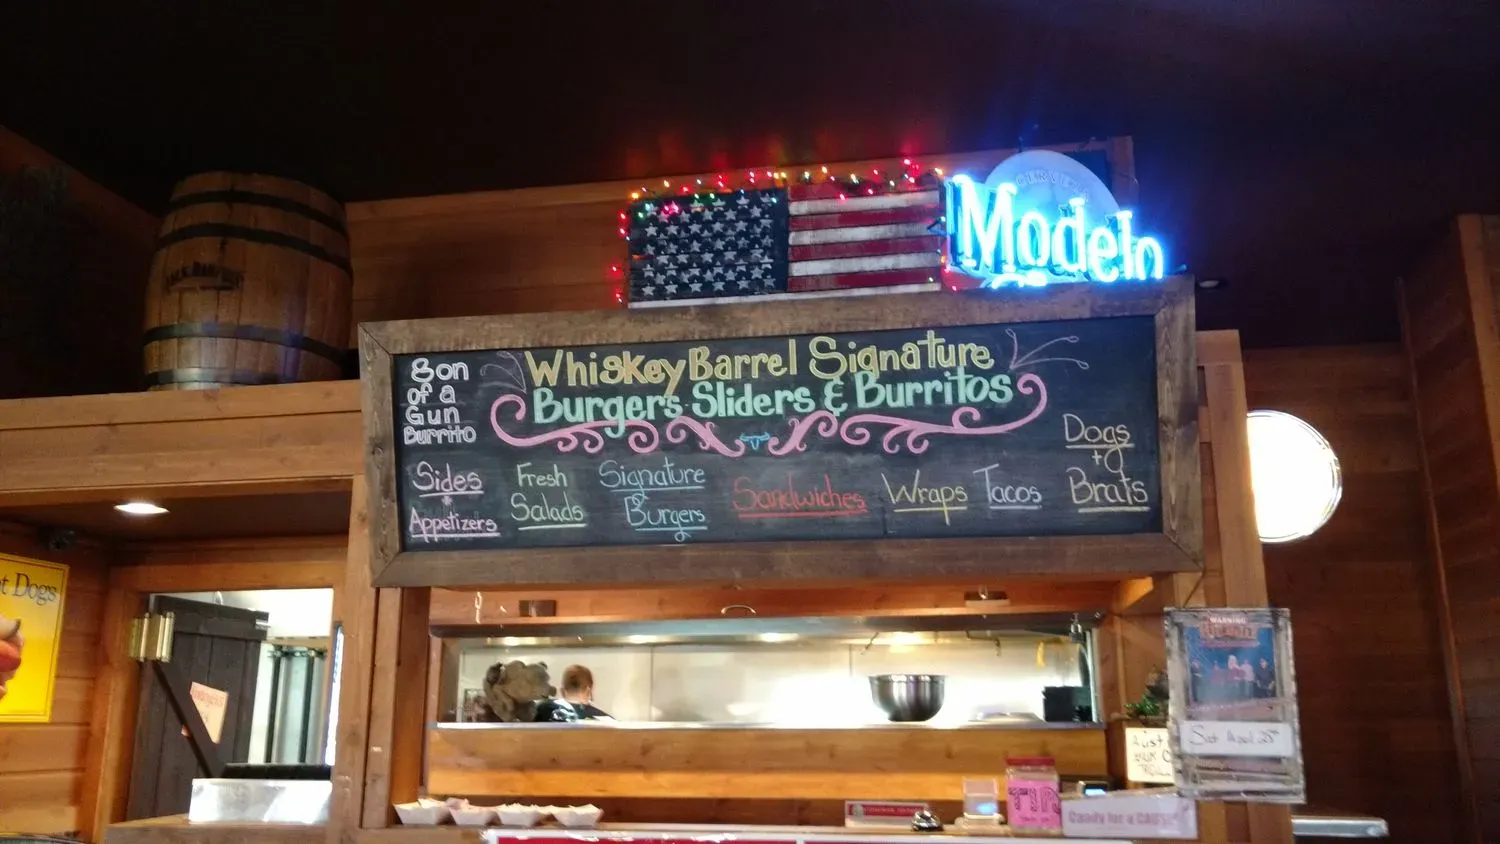 JACK DANIEL'S
CERVEZA
Modelo
Son
of a
Gun
Burrito
Whiskey Barrel Signature
Burgers Sliders & Burritos
Sides
+
Appetizers
Fresh
Salads
Signature
Burgers
Sandwiches
Wraps
Tacos
Dogs
+
Brats
t Dogs
WARNING
Sat April 25
Candy for a CAUSE